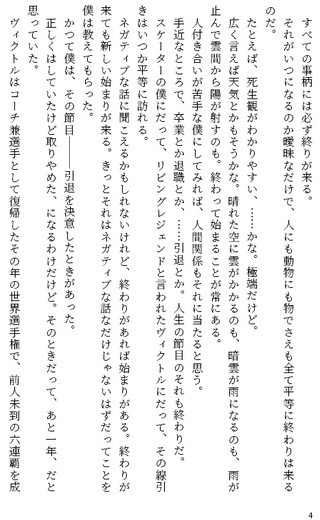 すべての事柄には必ず終りが来る。
それがいつになるのか曖昧なだけで、人にも動物にも物でさえも全て平等に終わりは来る
のだ。
たとえば、死生観がわかりやすい、……かな。極端だけど。
広く言えば天気とかもそうかな。晴れた空に雲がかかるのも、暗雲が雨になるのも、雨が
止んで雲間から陽が射すのも。終わって始まることが常にある。
人付き合いが苦手な僕にしてみれば、人間関係もそれに当たると思う。
手近なところで、卒業とか退職とか、……引退とか。人生の節目のそれも終わりだ。
スケーターの僕にだって、リビングレジェンドと言われたヴィクトルにだって、その線引
きはいつか平等に訪れる。
ネガティブな話に聞こえるかもしれないけれど、終わりがあれば始まりがある。終わりが
来ても新しい始まりが来る。きっとそれはネガティブな話なだけじゃないはずだってことを
僕は教えてもらった。
かつて僕は、その節目――引退を決意したときがあった。
正しくはしていたけど取りやめた、になるわけだけど。そのときだって、あと一年、だと
思っていた。
ヴィクトルはコーチ兼選手として復帰したその年の世界選手権で、前人未到の六連覇を成
4